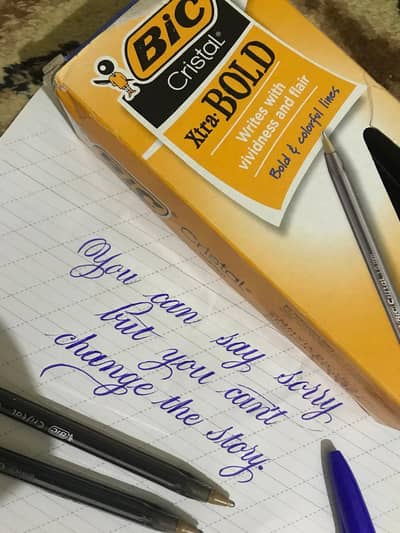 BiC
Cristal®
Xtra-BOLD
Writes with
vividness and flair
Bold & colorful lines
BiC
Cristal
You can say sorry
but you can't
change the story.
BiC Cristal